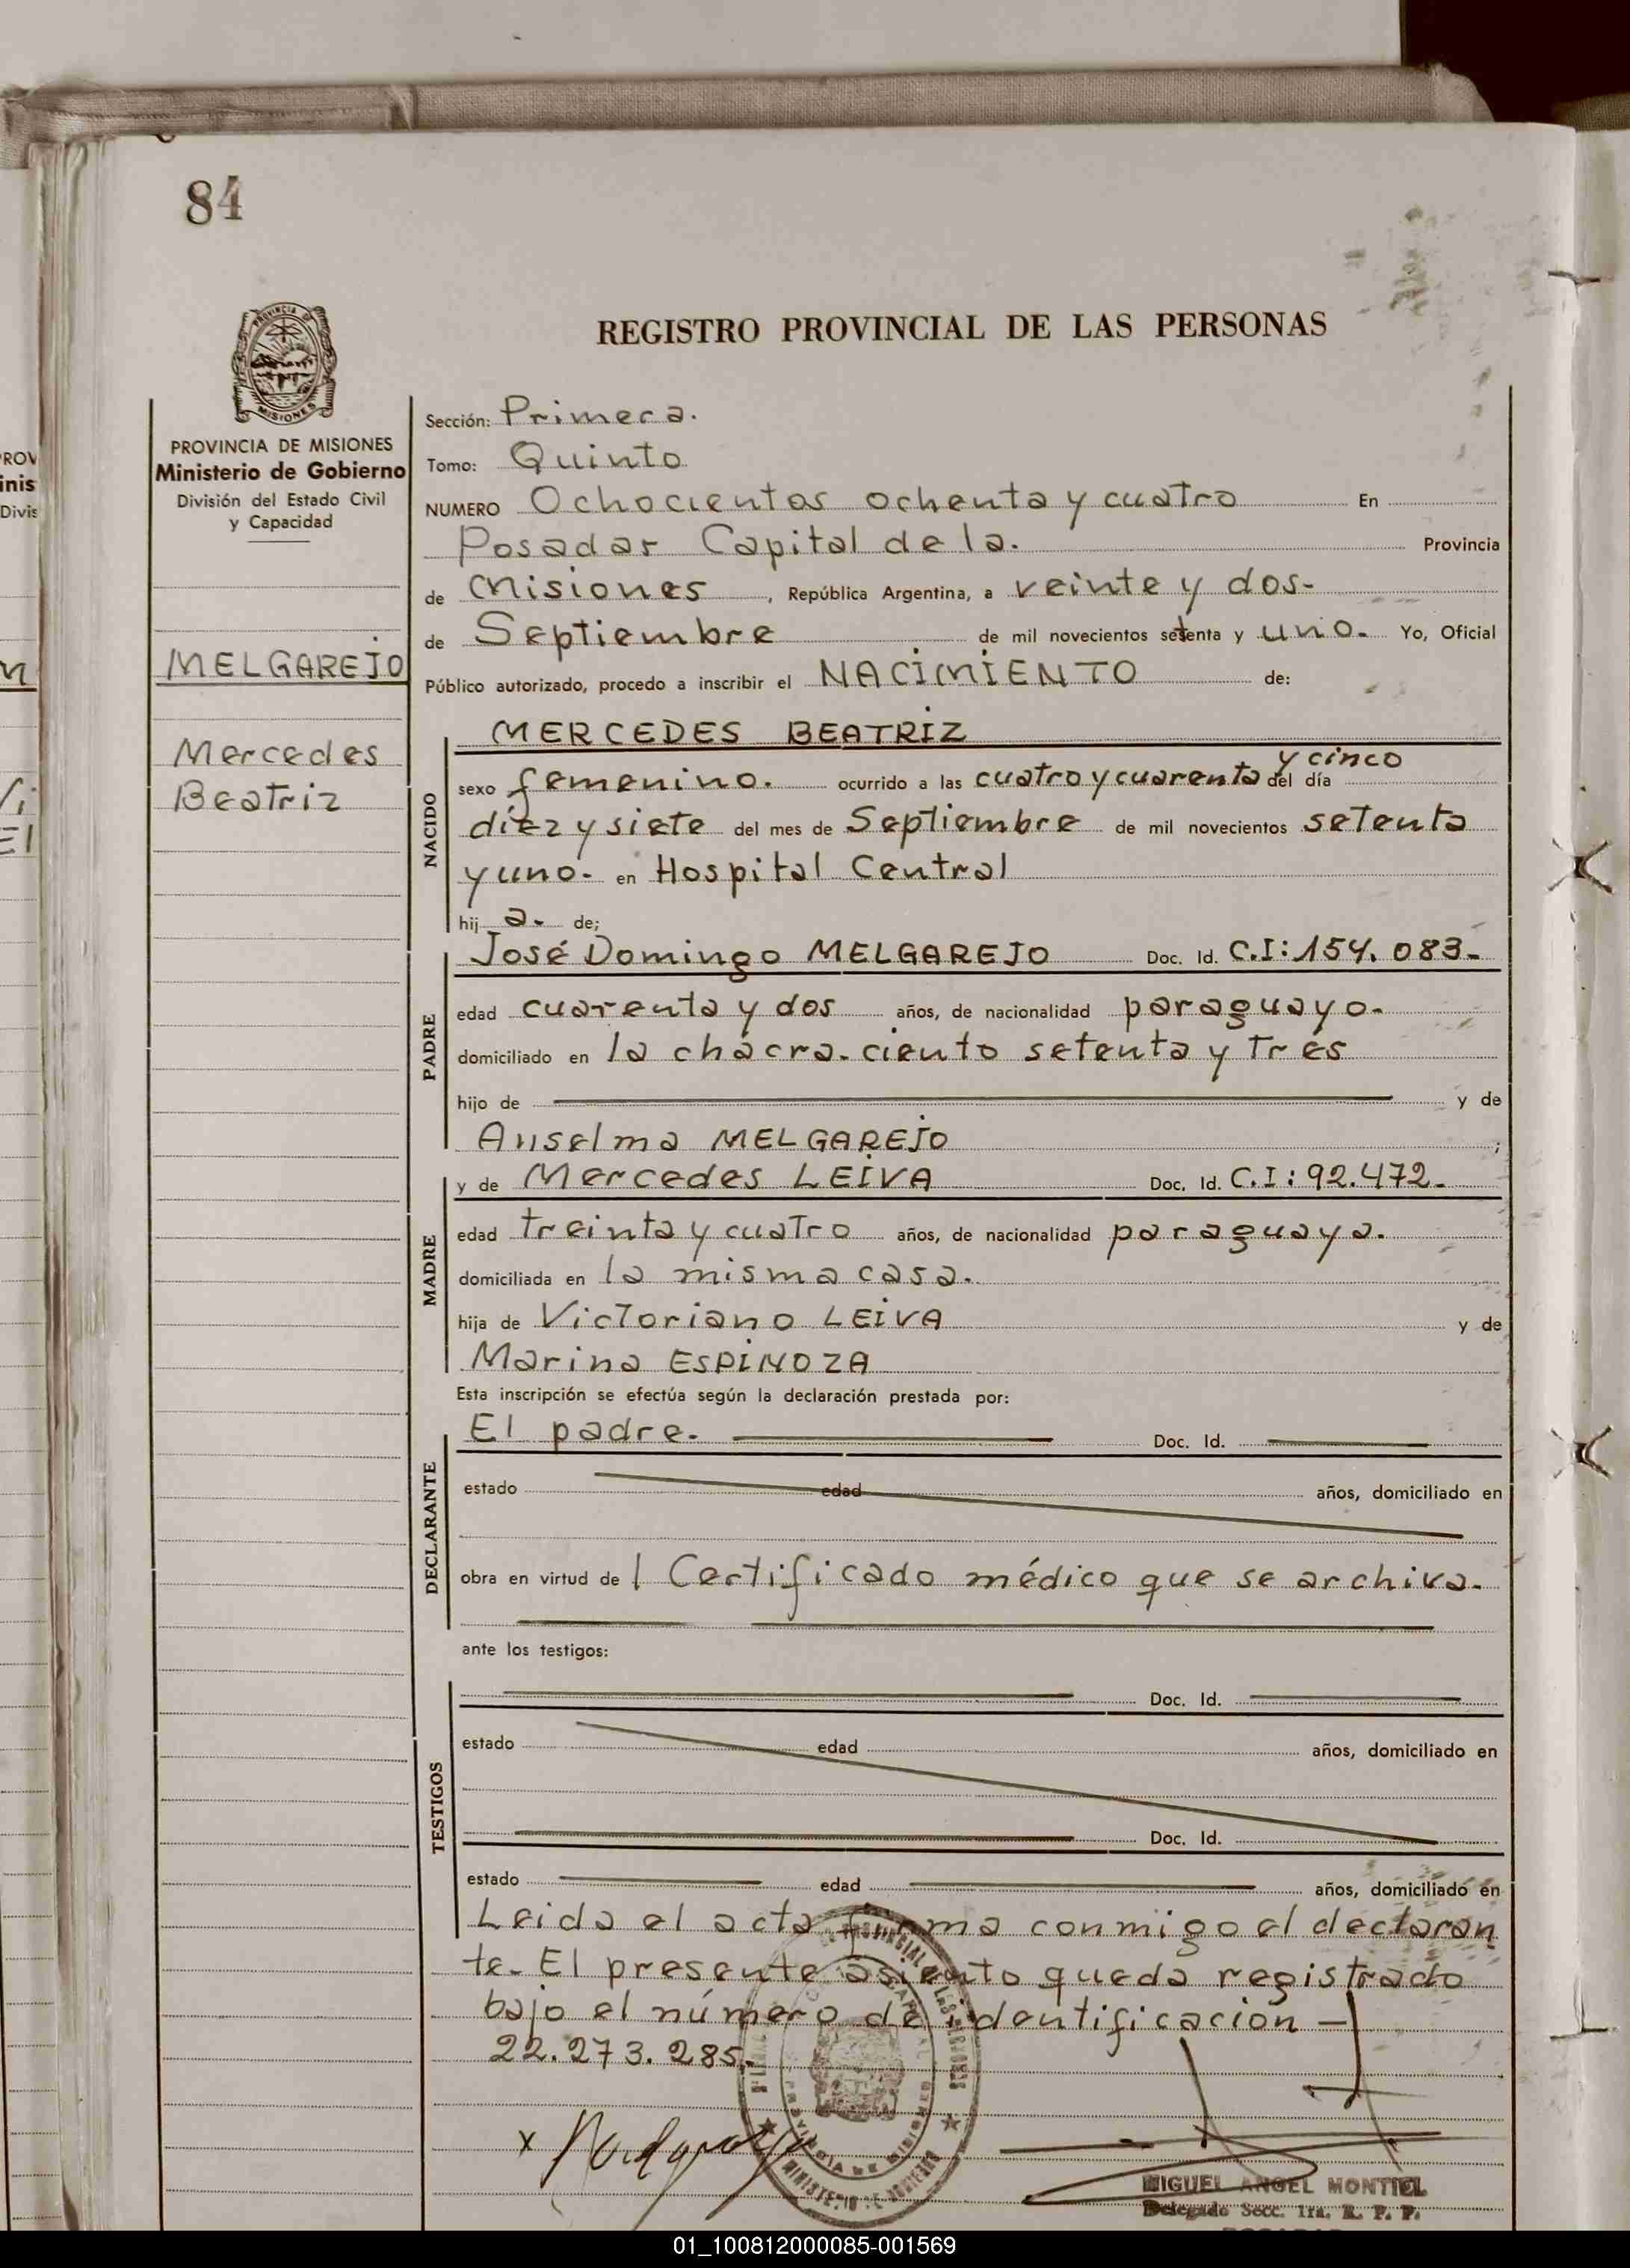 84
REGISTRO PROVINCIAL DE LAS PERSONAS
PROVINCIA DE MISIONES
Ministerio de Gobierno
División del Estado Civil
y Capacidad
MELGAREJO
Mercedes
Beatriz
Sección: Primera.
Tomo: Quinto
NUMERO Ochocientos ochenta y cuatro En
Posadas Capital de la. Provincia
de Misiones, República Argentina, a veinte y dos-
de Septiembre de mil novecientos setenta y uno. Yo, Oficial
Público autorizado, procedo a inscribir el NACIMIENTO de:
NACIDO
MERCEDES BEATRIZ
y cinco
sexo femenino. ocurrido a las cuatro y cuarenta del día
diez y siete del mes de Septiembre de mil novecientos setenta
y uno- en Hospital Central
hij a- de;
PADRE
José Domingo MELGAREJO Doc. Id. C.I: 154.083-
edad cuarenta y dos años, de nacionalidad paraguayo.
domiciliado en la chácra. ciento setenta y tres
hijo de y de
Anselma MELGAREJO ;
MADRE
y de Mercedes LEIVA Doc. Id. C.I: 92.472-
edad treinta y cuatro años, de nacionalidad paraguaya.
domiciliada en la misma casa.
hija de Victoriano LEIVA y de
Marina ESPINOZA
Esta inscripción se efectúa según la declaración prestada por:
DECLARANTE
El padre. Doc. Id.
estado edad años, domiciliado en
obra en virtud de l Certificado médico que se archiva.
ante los testigos:
TESTIGOS
Doc. Id.
estado edad años, domiciliado en
Doc. Id.
estado edad años, domiciliado en
Leida el acta firma conmigo el declaran
te. El presente asiento queda registrado
bajo el número de identificación -
22.273.285.
x
MIGUEL ANGEL MONTIEL
Delegado Secc. 1ra. R. P. P.
01_100812000085-001569